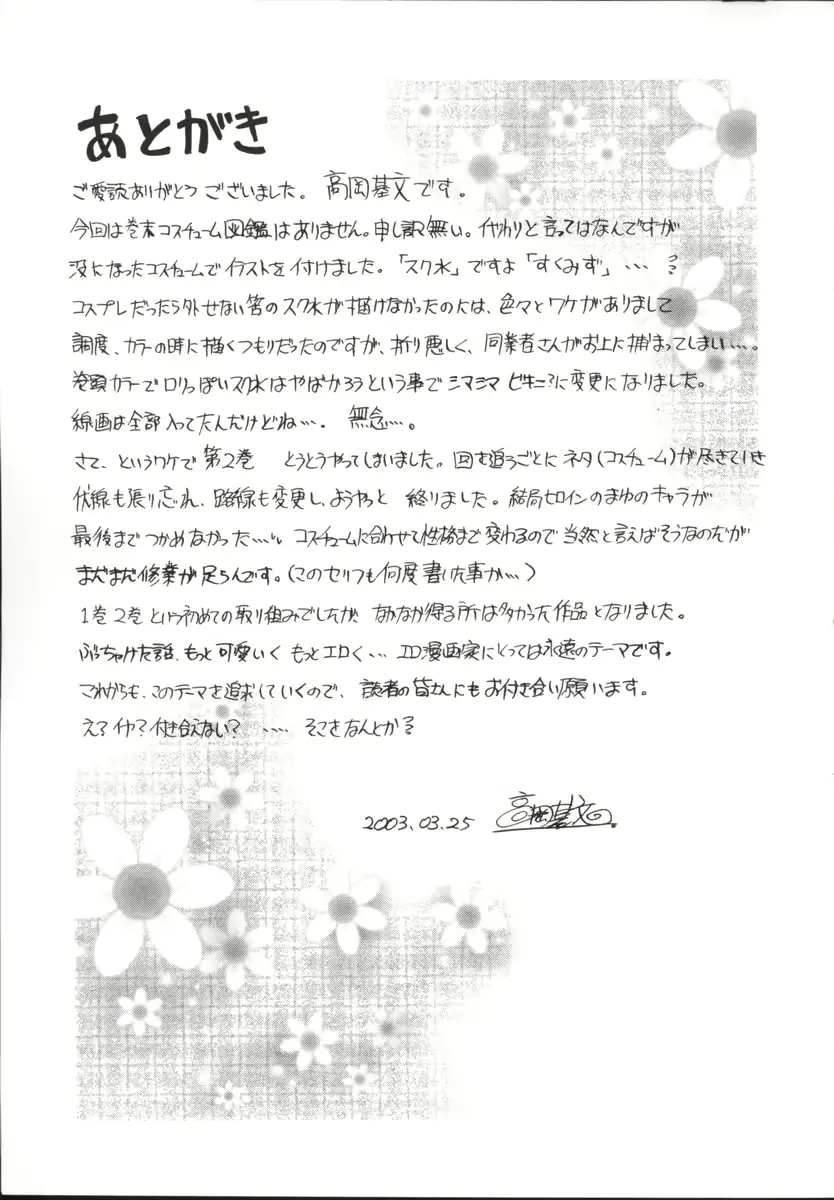 あとがき
ご愛読ありがとうございました。 高岡基文です。
今回は巻末コスチューム図鑑はありません。申し訳無い。イヤガリと言ってはなんですが
没になったコスチュームでイラストを付けました。「スク水」ですよ「すくみず」…?
コスプレだったら外せない筈のスク水が描けなかったのには、色々とワケがありまして
調度、カラーの時に描くつもりだったのですが、折り悪しく、同業者さんがお上に捕まってしまい…。
巻頭カラーでロリっぽいスク水はやばかろうという事でシマシマビキニ?に変更になりました。
線画は全部入ってたんだけどね…。 無念…。
さて、というワケで第2巻 とうとうやってしまいました。回を追うごとにネタ(コスチューム)が尽きていき
伏線も張り忘れ、路線も変更し、ようやっと 終りました。結局ヒロインのまゆのキャラが
最後までつかめなかった… コスチュームに合わせて性格まで変わるので当然と言えばそうなのだが
まだまだ修業が足らんです。(このセリフも何度書いた事か…)
1巻2巻という初めての取り組みでしたが、なかなか得る所は多かった作品となりました。
ぶっちゃけた話、もっと可愛いく もっとエロく… エロ漫画家にとっては永遠のテーマです。
これからも、このテーマを追求していくので、読者の皆さんにもお付き合い願います。
え?イヤ?付き合えない? …. そこをなんとか?
2003.03.25 高岡基文